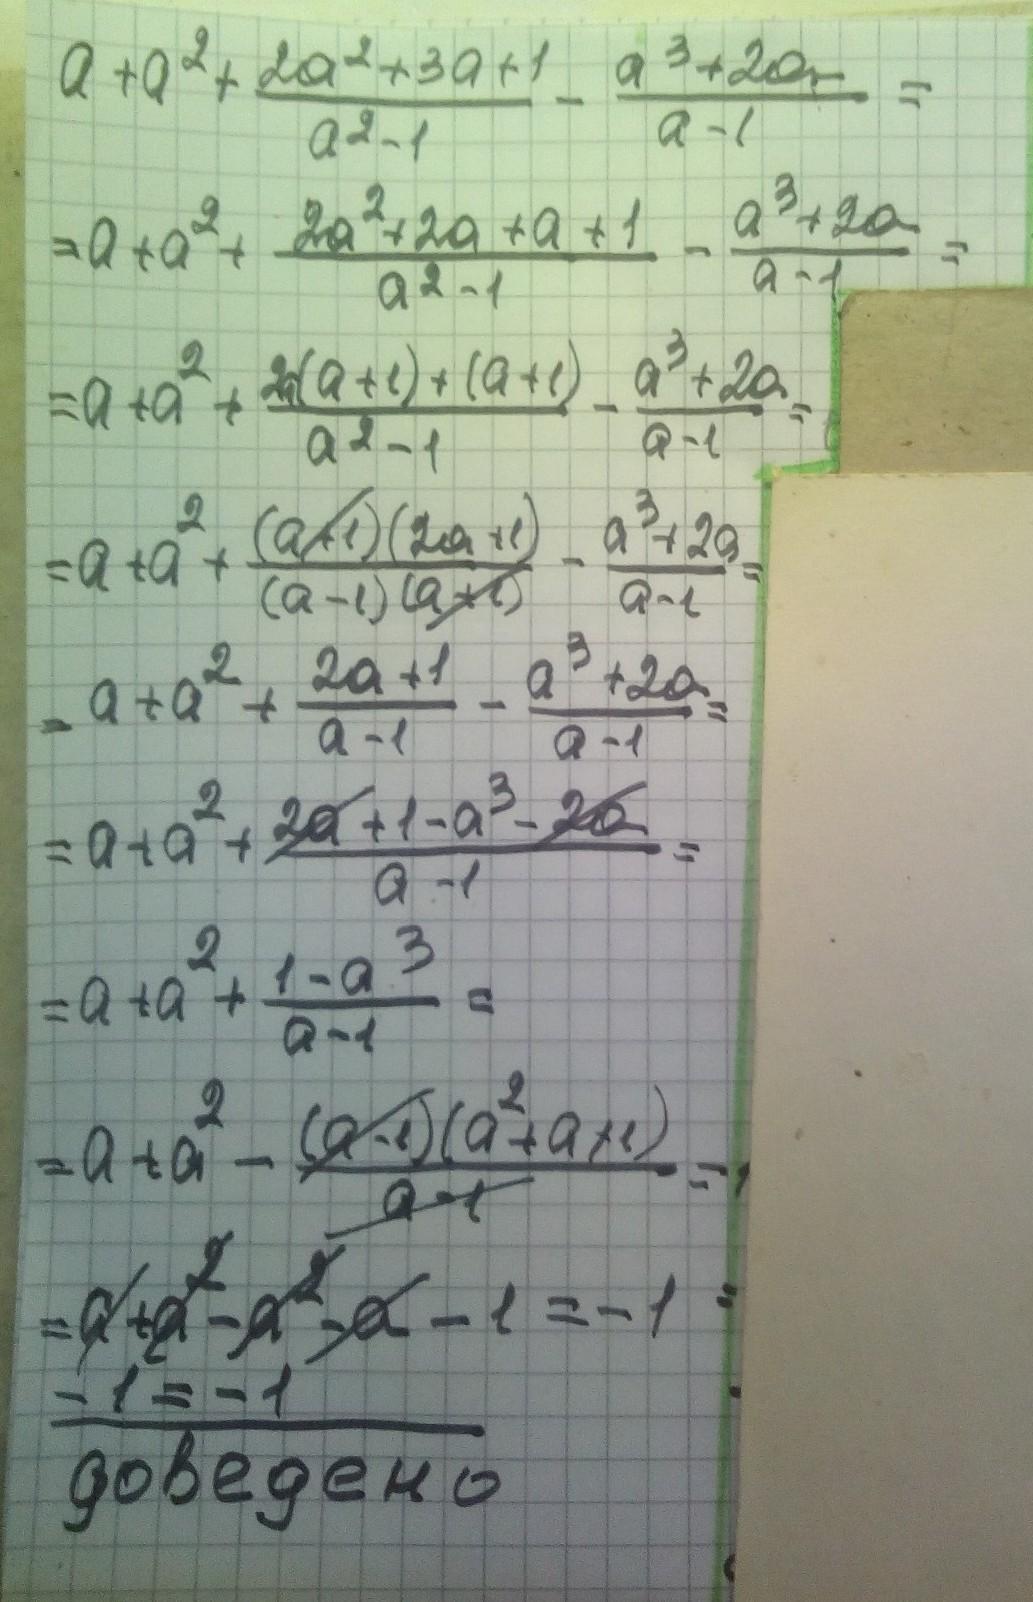 a + a² + (2a² + 3a + 1)/(a² - 1) - (a³ + 2a)/(a - 1) =
= a + a² + (2a² + 2a + a + 1)/(a² - 1) - (a³ + 2a)/(a - 1) =
= a + a² + (2a(a + 1) + (a + 1))/(a² - 1) - (a³ + 2a)/(a - 1) =
= a + a² + ((a + 1)(2a + 1))/((a - 1)(a + 1)) - (a³ + 2a)/(a - 1) =
= a + a² + (2a + 1)/(a - 1) - (a³ + 2a)/(a - 1) =
= a + a² + (2a + 1 - a³ - 2a)/(a - 1) =
= a + a² + (1 - a³)/(a - 1) =
= a + a² - ((a - 1)(a² + a + 1))/(a - 1) =
= a + a² - a² - a - 1 = -1
-1 = -1
доведено